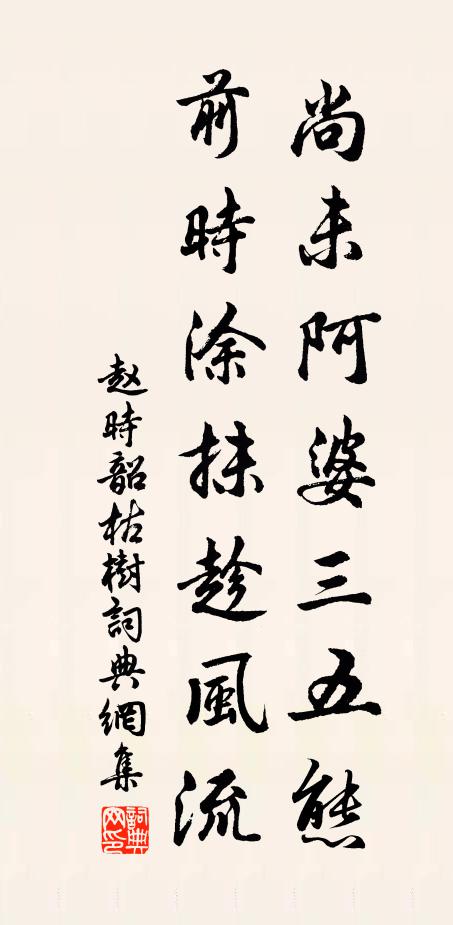 尚未阿婆三五熊
前時涂抹趁風流
赵時韶枯樹詞典網集
詞典网印